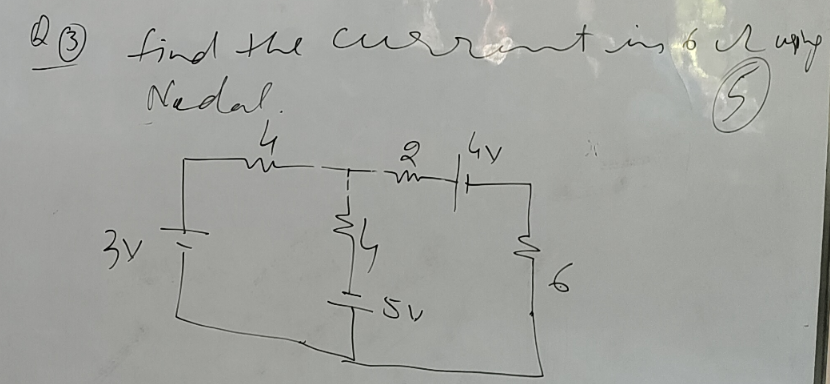 Q③ find the current in 6 Ω using
Nodal.
5
4
2
4V
3V
4
5V
6